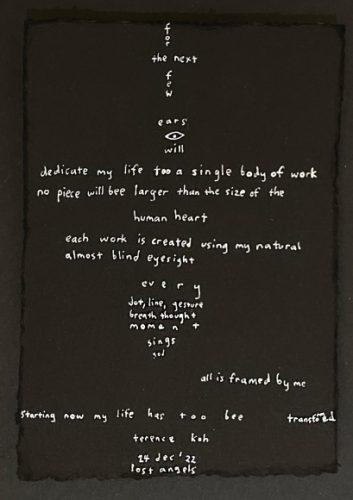 for
the next
few
ears
will
dedicate my life too a single body of work
no piece will bee larger than the size of the
human heart
each work is created using my natural
almost blind eyesight
every
dot, line, gesture
breath thought
moment
sings
god
all is framed by me
starting now my life has too bee transformed
terence koh
24 dec '22
lost angels